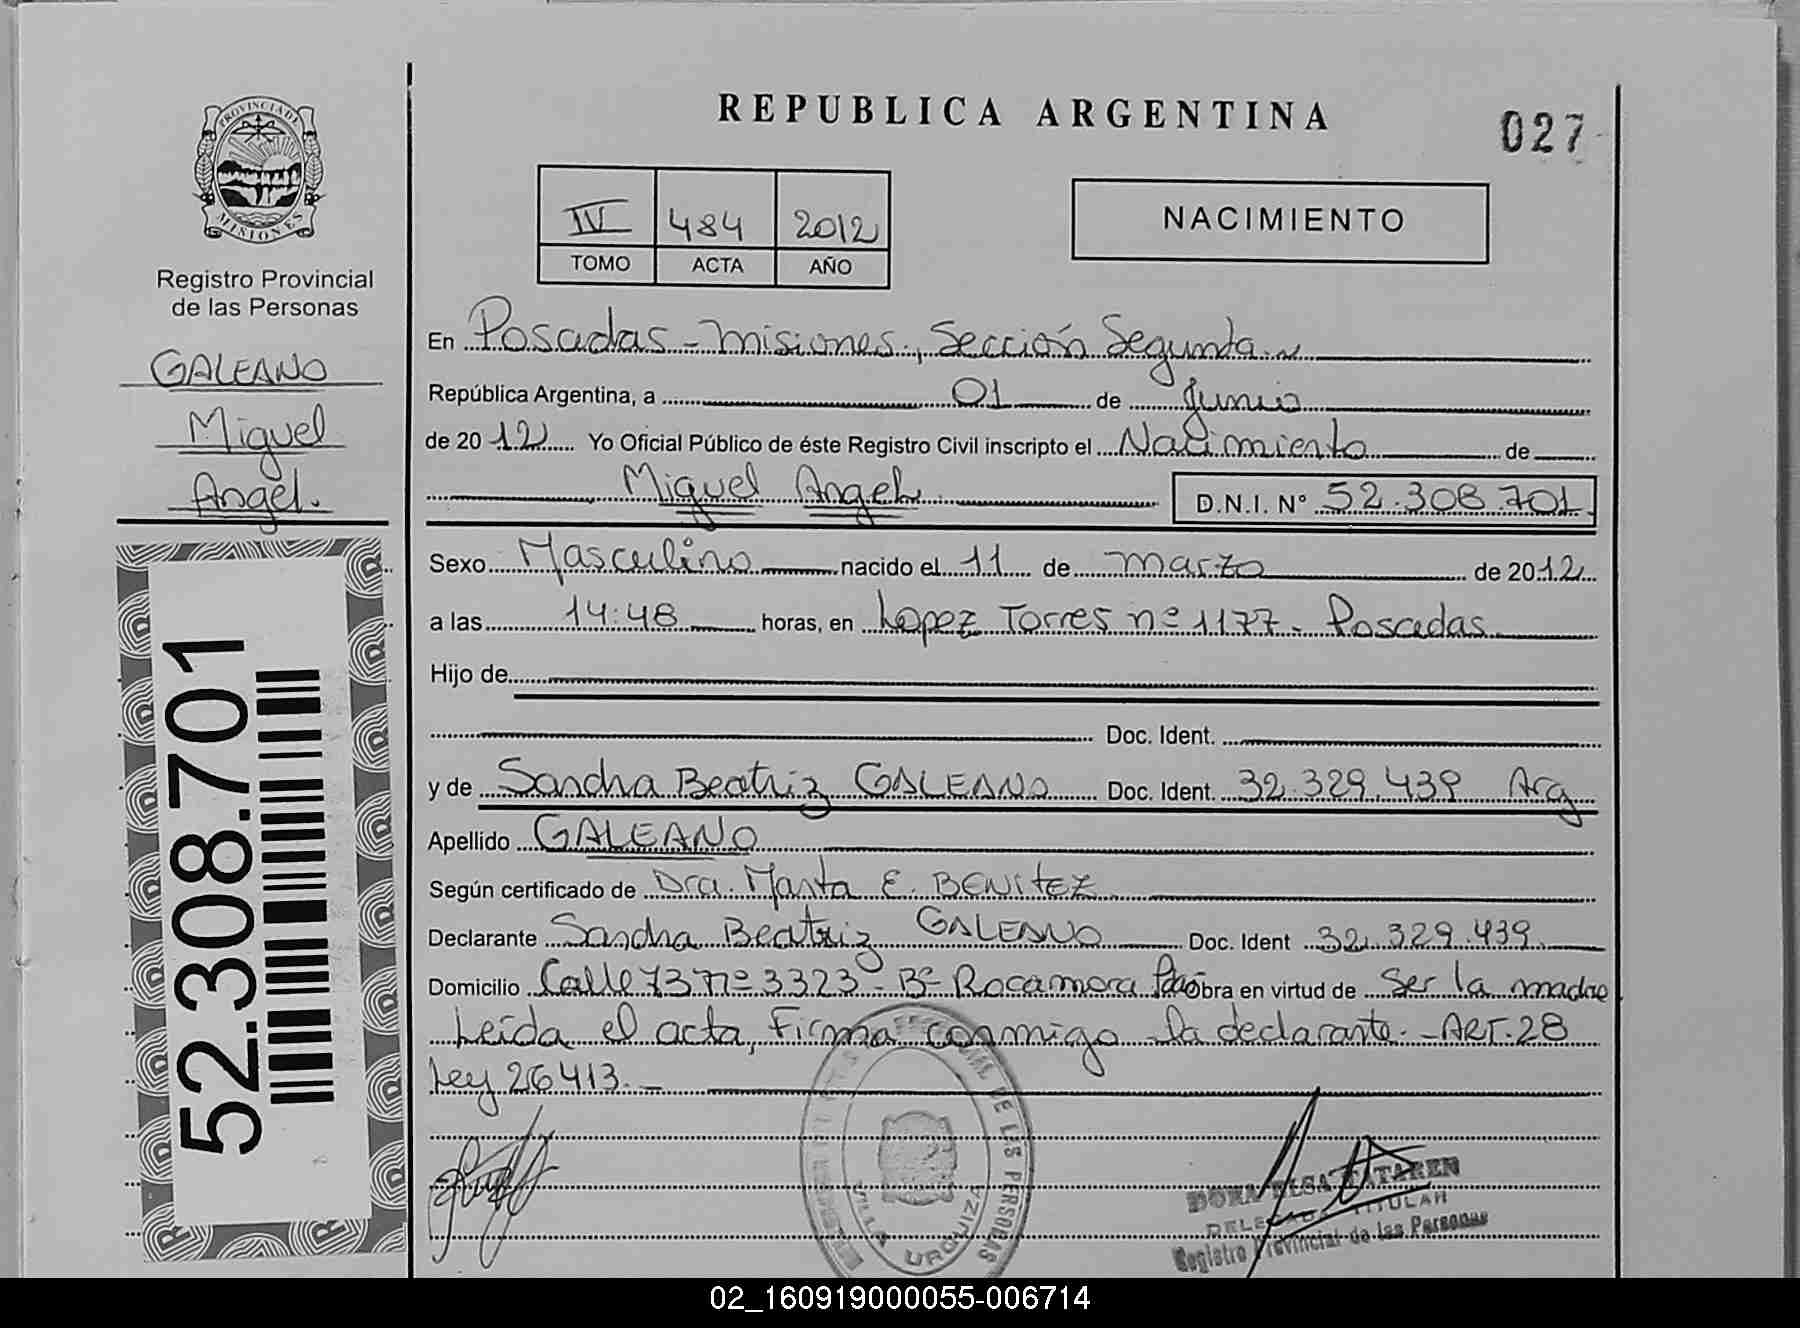 REPUBLICA ARGENTINA
027
PROVINCIA DE
MISIONES
Registro Provincial
de las Personas
GALEANO
Miguel
Angel.
52.308.701
IV 484 2012
TOMO ACTA AÑO
NACIMIENTO
En Posadas - Misiones, Sección Segunda
República Argentina, a 01 de Junio
de 2012 Yo Oficial Público de éste Registro Civil inscripto el Nacimiento de
Miguel Angel D.N.I. Nº 52.308.701
Sexo Masculino nacido el 11 de marzo de 2012
a las 14:48 horas, en Lopez Torres nº 1177 - Posadas
Hijo de
Doc. Ident.
y de Sandra Beatriz GALEANO Doc. Ident. 32.329.439 Arg
Apellido GALEANO
Según certificado de Dra. Marta E. BENITEZ
Declarante Sandra Beatriz GALEANO Doc. Ident 32.329.439
Domicilio Calle 73 nº 3323 - Bº Rocamora Pdas Obra en virtud de ser la madre
Leída el acta, Firma conmigo la declarante. - ART. 28
Ley 26413. -
DE LAS PERSONAS
VILLA URQUIZA
DORA ELSA
DELEGADA TITULAR
Registro Provincial de las Personas
02_160919000055-006714